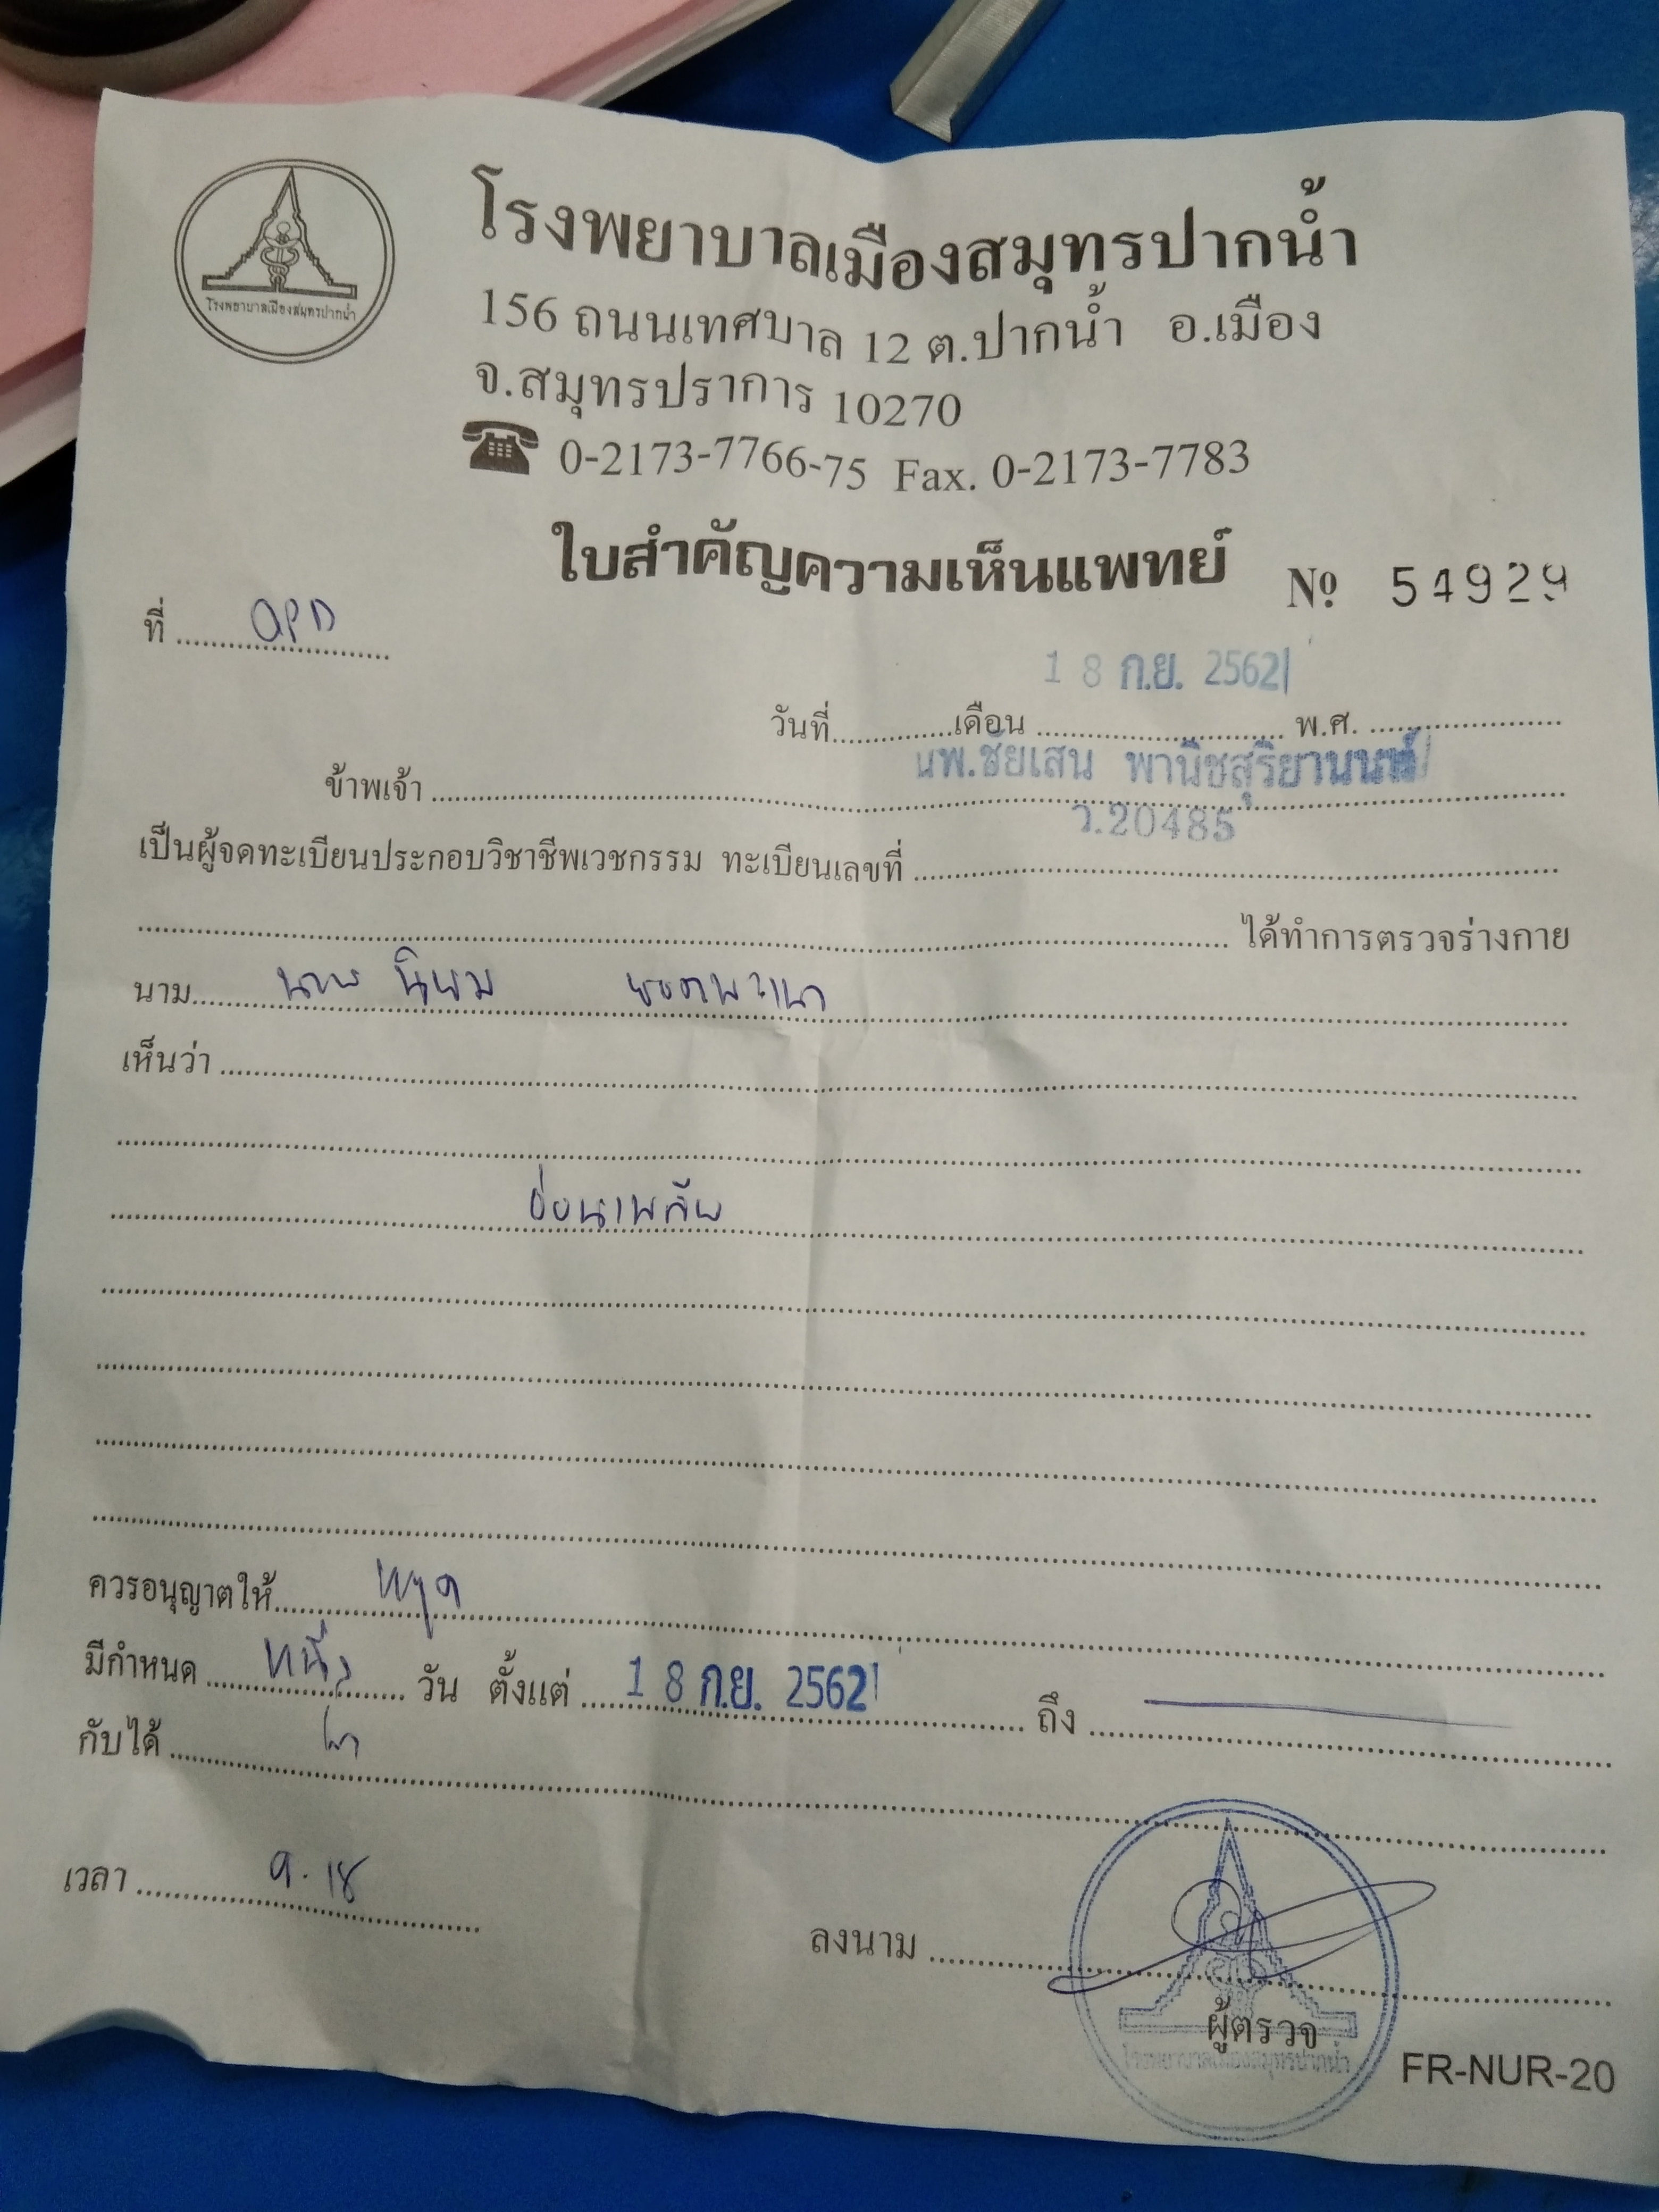 โรงพยาบาลเมืองสมุทรปากน้ำ
โรงพยาบาลเมืองสมุทรปากน้ำ
156 ถนนเทศบาล 12 ต.ปากน้ำ อ.เมือง
จ.สมุทรปราการ 10270
☎ 0-2173-7766-75 Fax. 0-2173-7783
ใบสำคัญความเห็นแพทย์ № 54929
ที่ OPD
18 ก.ย. 2562
วันที่ เดือน พ.ศ.
นพ.ชัยเสน พานิชสุริยานนท์
ข้าพเจ้า
ว.20485
เป็นผู้จดทะเบียนประกอบวิชาชีพเวชกรรม ทะเบียนเลขที่
ได้ทำการตรวจร่างกาย
นาม นาย นิยม
เห็นว่า
อ่อนเพลีย
ควรอนุญาตให้ หยุด
มีกำหนด หนึ่ง วัน ตั้งแต่ 18 ก.ย. 2562 ถึง
กับได้
เวลา 9.18
ลงนาม
ผู้ตรวจ
โรงพยาบาลเมืองสมุทรปากน้ำ
FR-NUR-20